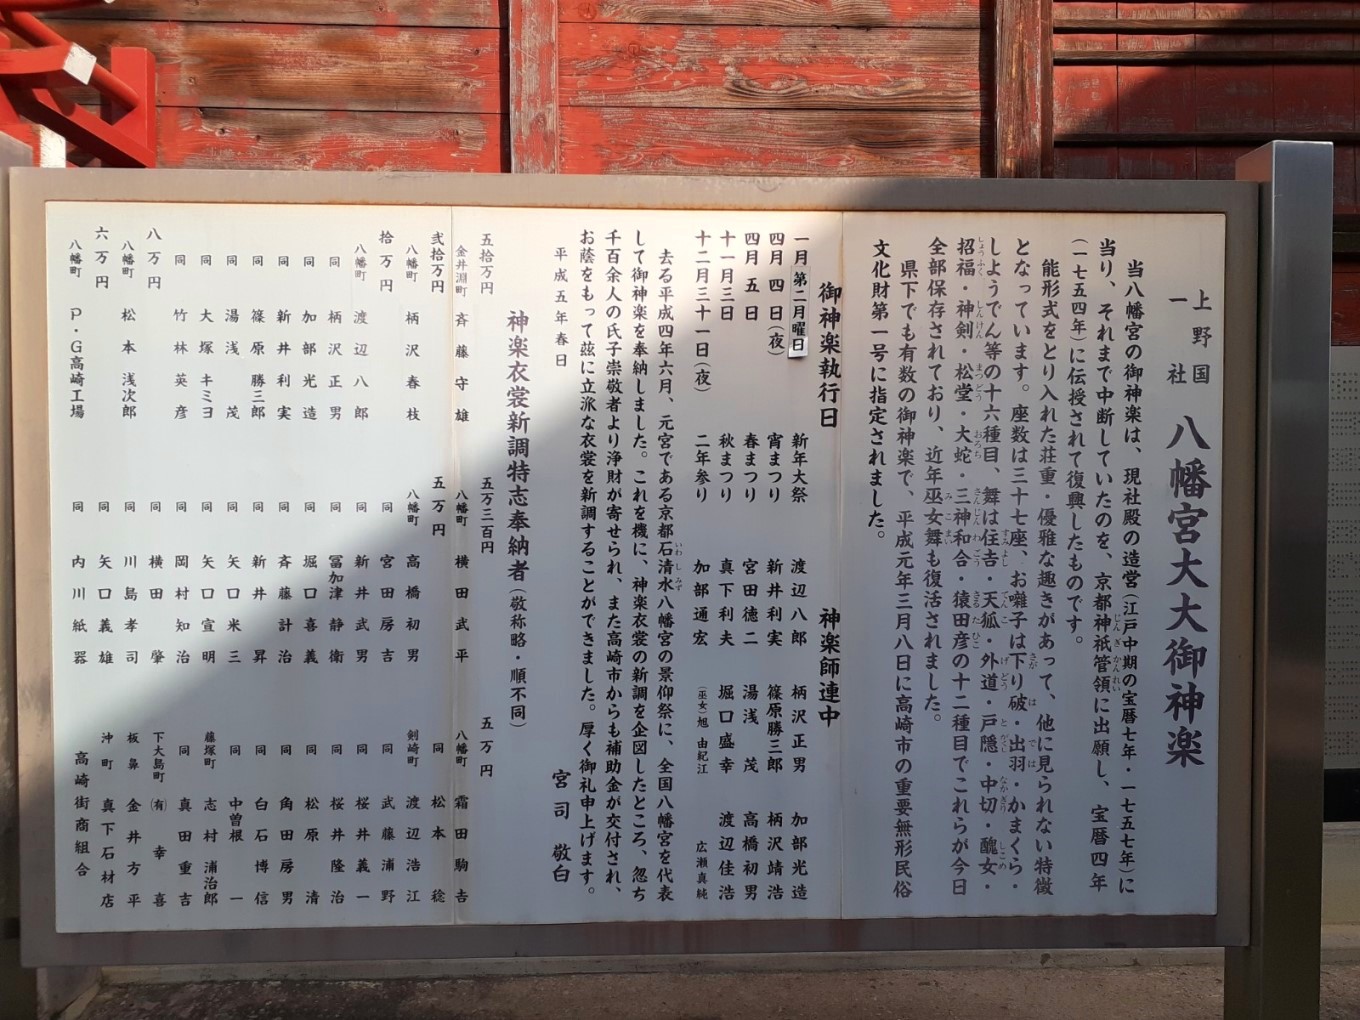 上野国
一社
八幡宮大大御神楽
当八幡宮の御神楽は、現社殿の造営(江戸中期の宝暦七年・一七五七年)に
当り、それまで中断していたのを、京都神祇管領に出願し、宝暦四年
(一七五四年)に伝授されて復興したものです。
能形式をとり入れた荘重・優雅な趣きがあって、他に見られない特徴
となっています。座数は三十七座、お囃子は下り破・出羽・かまくら・
しようでん等の十六種目、舞は住吉・天狐・外道・戸隠・中切・醜女・
招福・神剣・松堂・大蛇・三神和合・猿田彦の十二種目でこれらが今日
全部保存されており、近年巫女舞も復活されました。
県下でも有数の御神楽で、平成元年三月八日に高崎市の重要無形民俗
文化財第一号に指定されました。
御神楽執行日 神楽師連中
一月 第二月曜日 新年大祭 渡辺八郎 柄沢正男 加部光造
四月四日(夜) 宵まつり 新井利実 篠原勝三郎 柄沢靖浩
四月五日 春まつり 宮田徳二 湯浅茂 高橋初男
十一月三日 秋まつり 真下利夫 堀口盛幸 渡辺佳浩
十二月三十一日(夜) 二年参り 加部通宏 (巫女)旭由紀江 広瀬真純
去る平成四年六月、元宮である京都石清水八幡宮の景仰祭に、全国八幡宮を代表
して御神楽を奉納しました。これを機に、神楽衣裳の新調を企図したところ、忽ち
千百余人の氏子崇敬者より浄財が寄せられ、また高崎市からも補助金が交付され、
お蔭をもって茲に立派な衣裳を新調することができました。厚く御礼申上げます。
平成五年春日 宮司 敬白
神楽衣裳新調特志奉納者(敬称略・順不同)
五拾万円 五万三百円 五万円
金井淵町 斉藤守雄 八幡町 横田武平 八幡町 霜田駒吉
弐拾万円 五万円 同 松本稔
八幡町 柄沢春枝 八幡町 高橋初男 剣崎町 渡辺浩江
拾万円 同 宮田房吉 同 武藤浦野
八幡町 渡辺八郎 同 新井武男 同 桜井義一
同 柄沢正男 同 冨加津静衛 同 桜井隆治
同 加部光造 同 堀口喜義 同 松原清
同 新井利実 同 斉藤計治 同 角田房男
同 篠原勝三郎 同 新井昇 同 白石博信
同 湯浅茂 同 矢口米三 同 中曽根一
同 大塚キミヨ 同 矢口宣明 藤塚町 志村浦治郎
同 竹林英彦 同 岡村知治 同 真田重吉
八万円 同 横田肇 下大島町 (有)幸喜
八幡町 松本浅次郎 同 川島孝司 板鼻 金井方平
六万円 同 矢口義雄 沖町 真下石材店
八幡町 P・G高崎工場 同 内川紙器 高崎街商組合